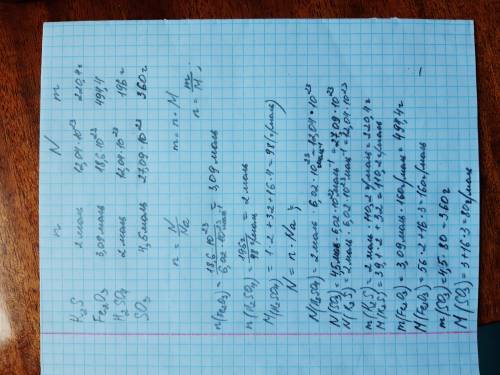 n N m
K₂S 2 моль 12,04·10²³ 220,4 г
Fe₂O₃ 3,09 моль 18,6·10²³ 494,4
H₂SO₄ 2 моль 12,04·10²³ 196 г
SO₃ 4,5 моль 27,09·10²³ 360 г
n = N/Na m = n · M
n = m/M
n(Fe₂O₃) = 18,6·10²³/6,02·10²³ моль⁻¹ = 3,09 моль
n(H₂SO₄) = 196 г/98 г/моль = 2 моль
M(H₂SO₄) = 1·2 + 32 + 16·4 = 98 г/моль
N = n · Na
N(H₂SO₄) = 2 моль · 6,02·10²³ моль⁻¹ = 12,04·10²³
N(SO₃) = 4,5 моль · 6,02·10²³ моль⁻¹ = 27,09·10²³
N(K₂S) = 2 моль · 6,02·10²³ моль⁻¹ = 12,04·10²³
m(K₂S) = 2 моль · 110,2 г/моль = 220,4 г
M(K₂S) = 39,1·2 + 32 = 110,2 г/моль
m(Fe₂O₃) = 3,09 моль · 160 г/моль = 494,4 г
M(Fe₂O₃) = 56·2 + 16·3 = 160 г/моль
m(SO₃) = 4,5 · 80 = 360 г
M(SO₃) = 3 + 16·3 = 80 г/моль